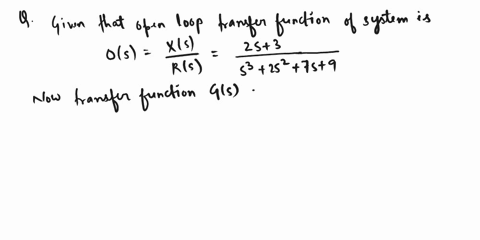 Q. Given that open loop transfer function of system is
O(s) = X(s)/R(s) = 2s+3/s³+2s²+7s+9
Now transfer function G(s) .